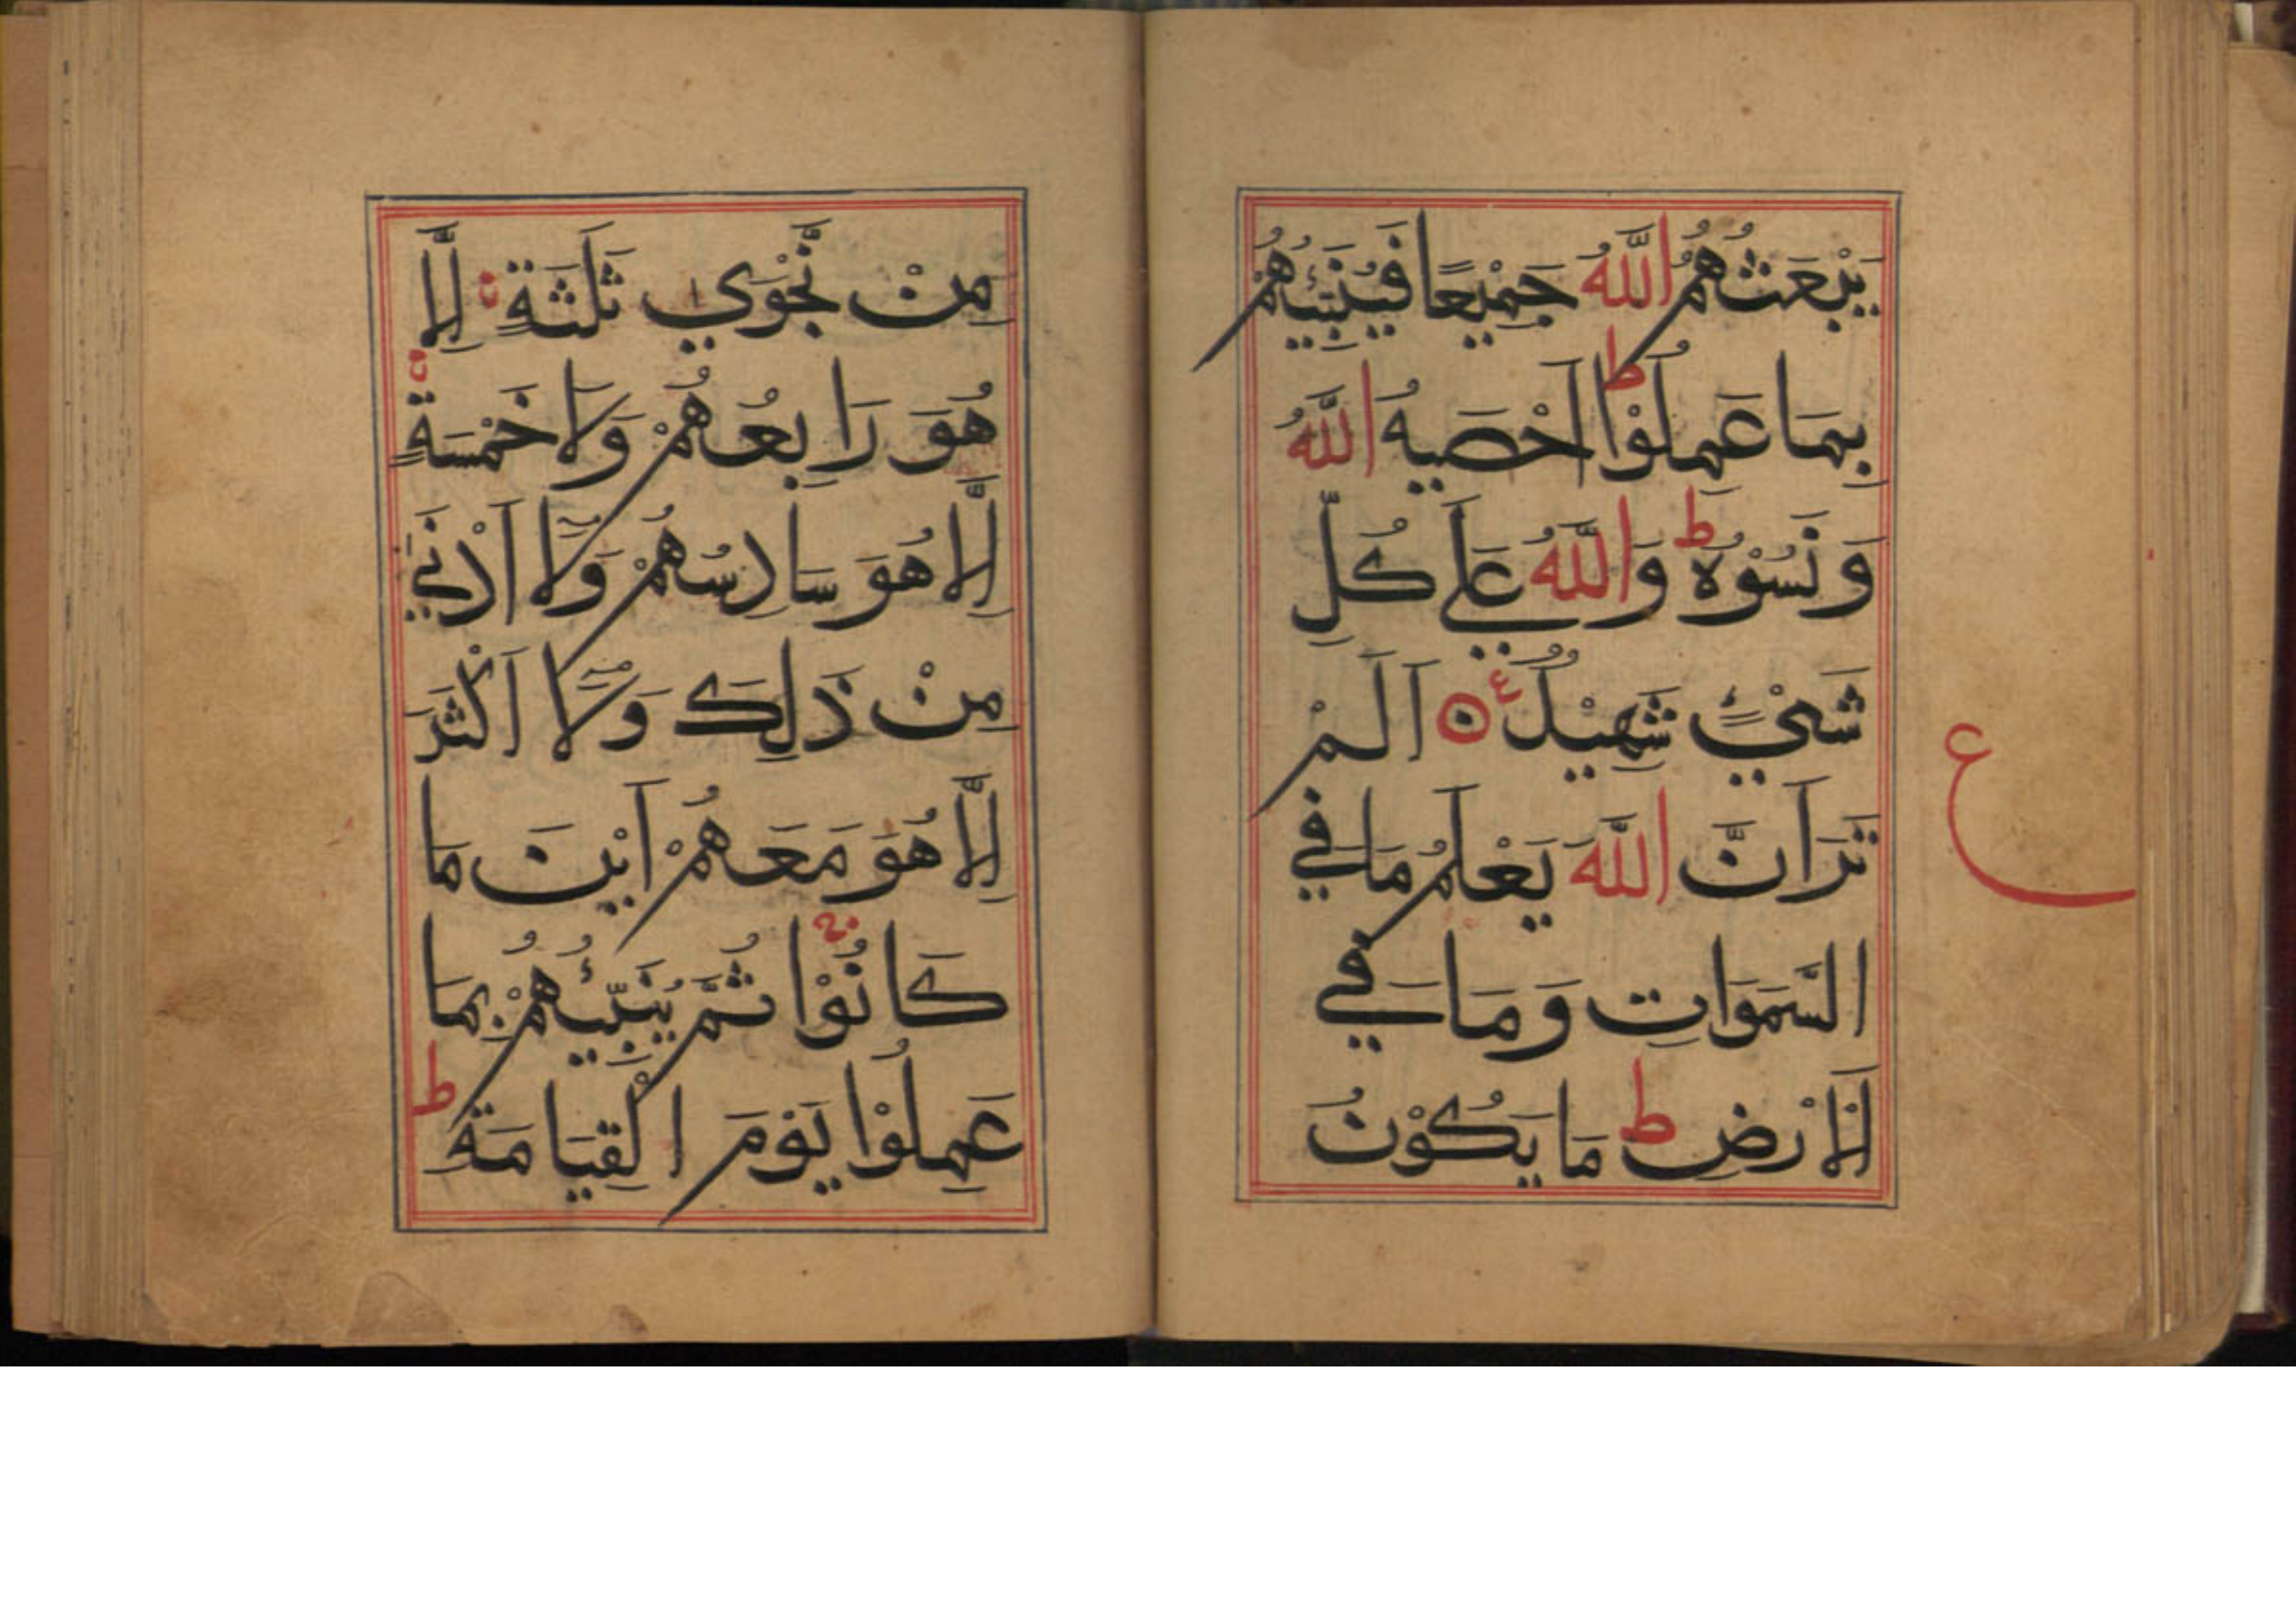 يَبْعَثُهُمُ اللّٰهُ جَمِيْعًا فَيُنَبِّئُهُمْ
بِمَا عَمِلُوْا ط اَحْصٰيهُ اللّٰهُ
وَنَسُوْهُ ط وَاللّٰهُ عَلٰي كُلِّ
شَيْءٍ شَهِيْدٌ ع اَلَمْ
تَرَ اَنَّ اللّٰهَ يَعْلَمُ مَا فِي
السَّمَوَاتِ وَمَا فِي
الْاَرْضِ ط مَا يَكُوْنُ
ع
مِنْ نَّجْوٰي ثَلٰثَةٍ اِلَّا
هُوَ رَابِعُهُمْ وَلَا خَمْسَةٍ
اِلَّا هُوَ سَادِسُهُمْ وَلَآ اَدْنٰي
مِنْ ذَلِكَ وَلَآ اَكْثَرَ
اِلَّا هُوَ مَعَهُمْ اَيْنَ مَا
كَانُوْا ثُمَّ يُنَبِّئُهُمْ بِمَا
عَمِلُوْا يَوْمَ الْقِيَامَةِ ط